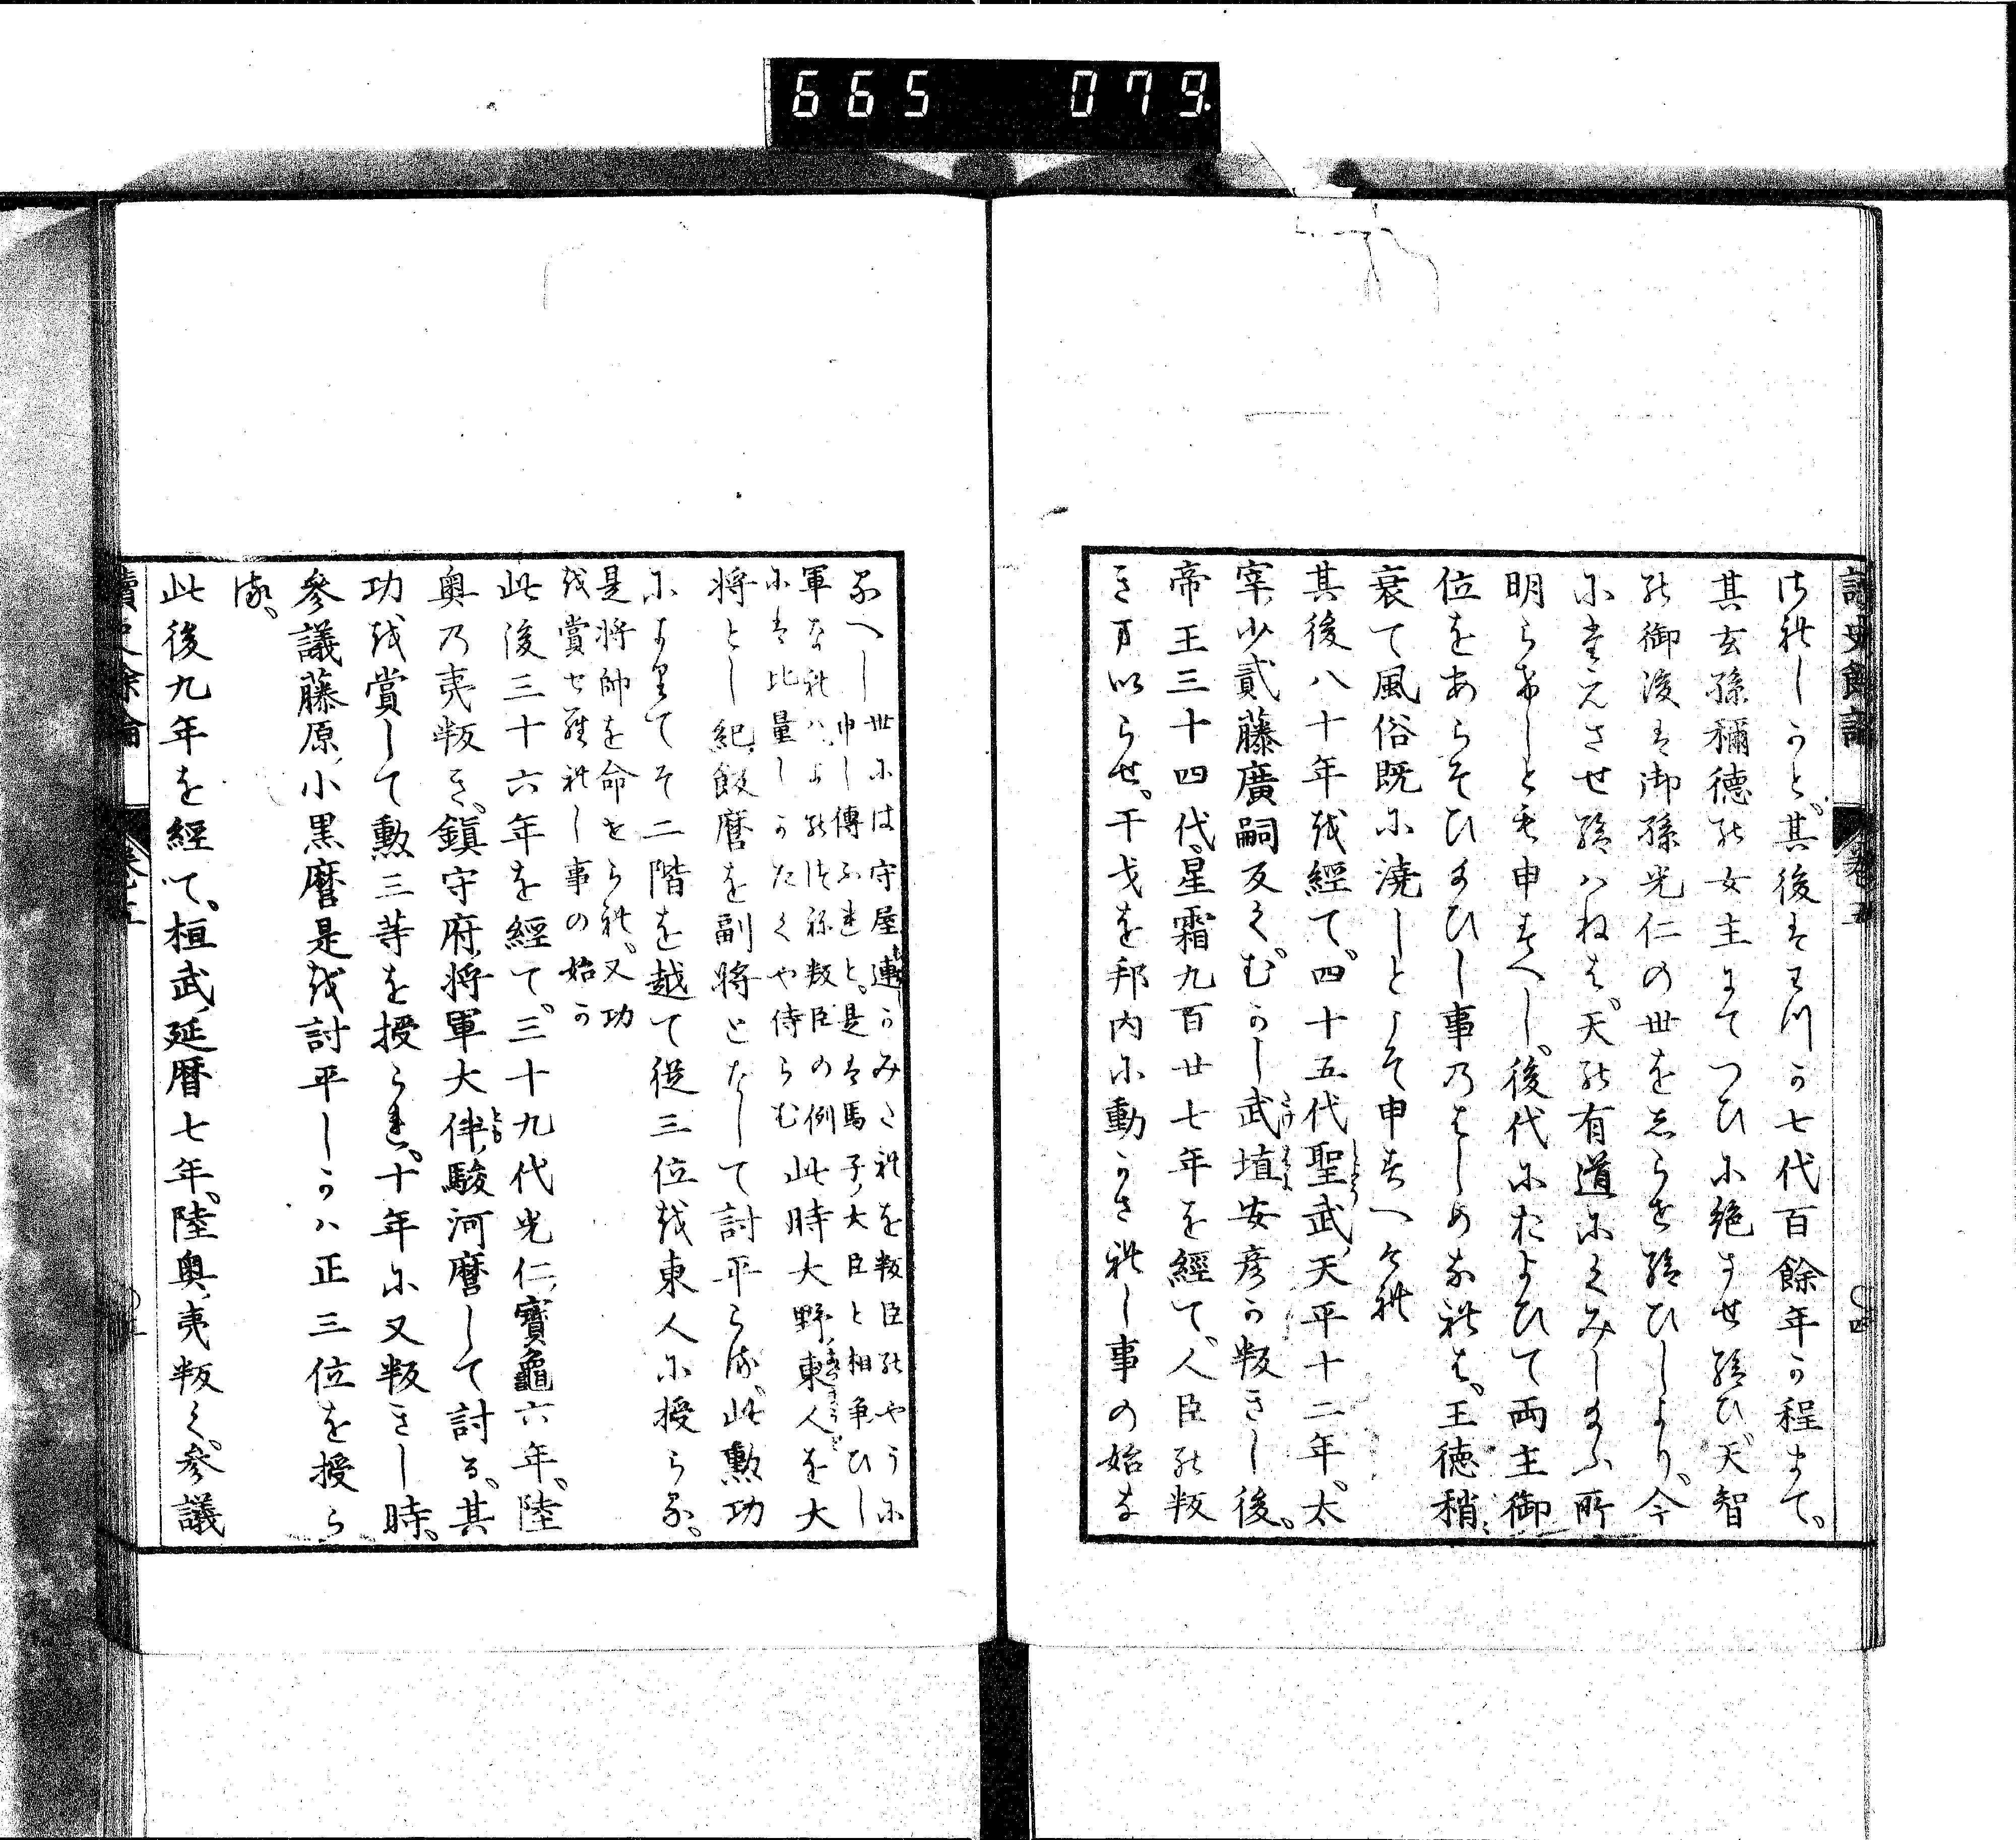 665 079
讀史餘論 卷五 四
されしかと、其後はわつか七代百餘年か程まて、
其玄孫稱德の女主まてつひに絶させ給ひ、天智
の御後は御孫光仁の世をしらせ給ひしより、今
に堂えさせ給ハねは、天の有道にくみしまふ所
明らかしとも申すへし、後代におよひて両主御
位をあらそひ給ひし事乃はしめなれは、王德稍
衰て風俗既に澆しとこそ申すへけれ
其後八十年越經て、四十五代聖武、天平十二年、太
宰少貳藤廣嗣反く、むかし武埴安彦か叛きし後、
帝王三十四代、星霜九百廿七年を經て、人臣の叛
き可以らせ、干戈を邦内に動かされし事の始な
るへし世には守屋連かみこれを叛臣のやうに
申し傳ふれと、是は馬子大臣と相争ひし
軍なれハ、よのつね叛臣の例
には比量しかたくや侍らむ
此時大野東人を大
將とし紀飯麿を副將となして討平らる、此勲功
によりてそ二階を越て從三位越東人に授らる、
是將帥を命せられ、又功
越賞せられし事の始か
此後三十六年を經て、三十九代光仁、寶龜六年、陸
奥乃夷叛き、鎮守府將軍大伴駿河麿して討る、其
功越賞して勲三等を授られ、十年に又叛きし時、
參議藤原小黒麿是越討平しかハ正三位を授ら
る、
此後九年を經て、桓武、延暦七年、陸奥夷叛く、參議
讀史餘論 卷五